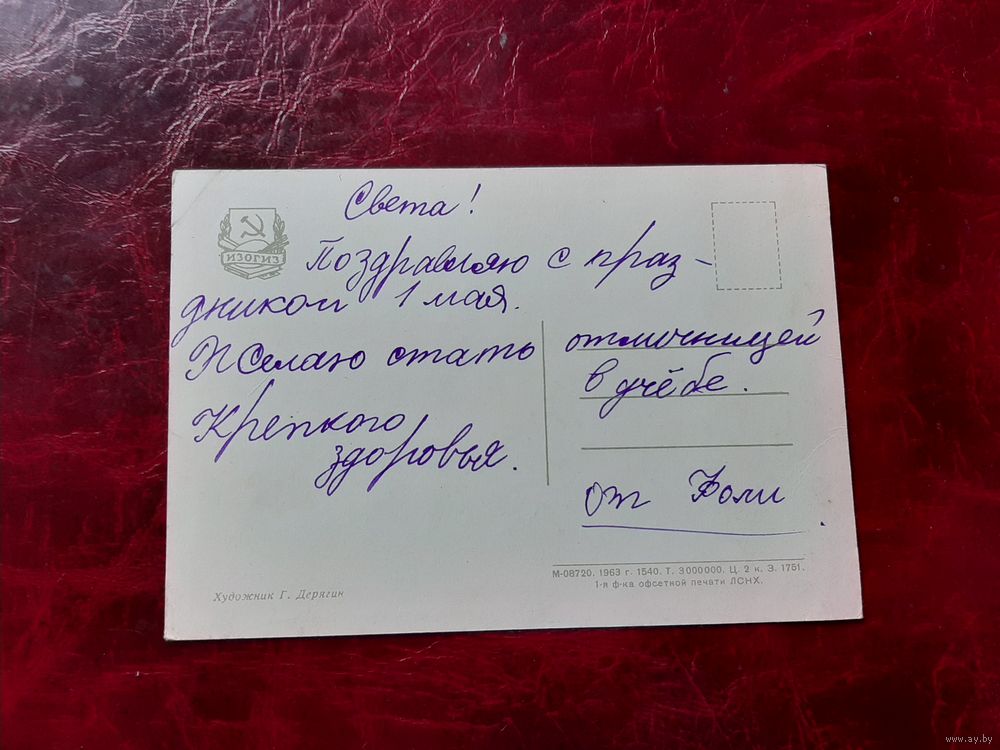 Света!
ИЗОГИЗ
Поздравляю с праз-
дником 1 мая.
Желаю стать отличницей
в учёбе.
Крепкого
здоровья.
от
М-08720. 1963 г. 1540. Т. 3000000. Ц. 2 к. З. 1751.
1-я ф-ка офсетной печати ЛСНХ.
Художник Г. Дерягин
www.ay.by